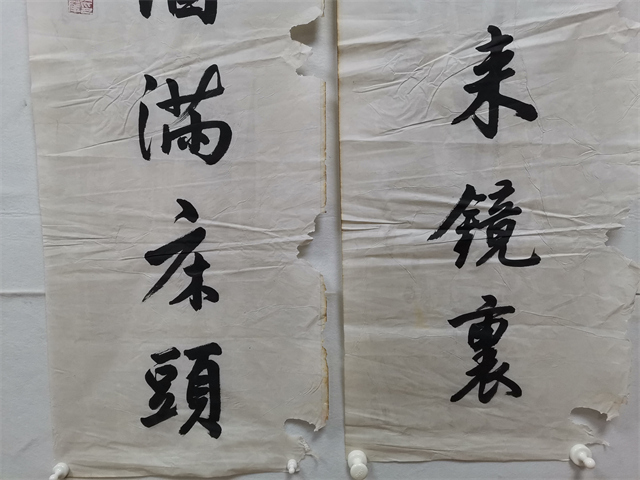 来鏡裏
滿床頭